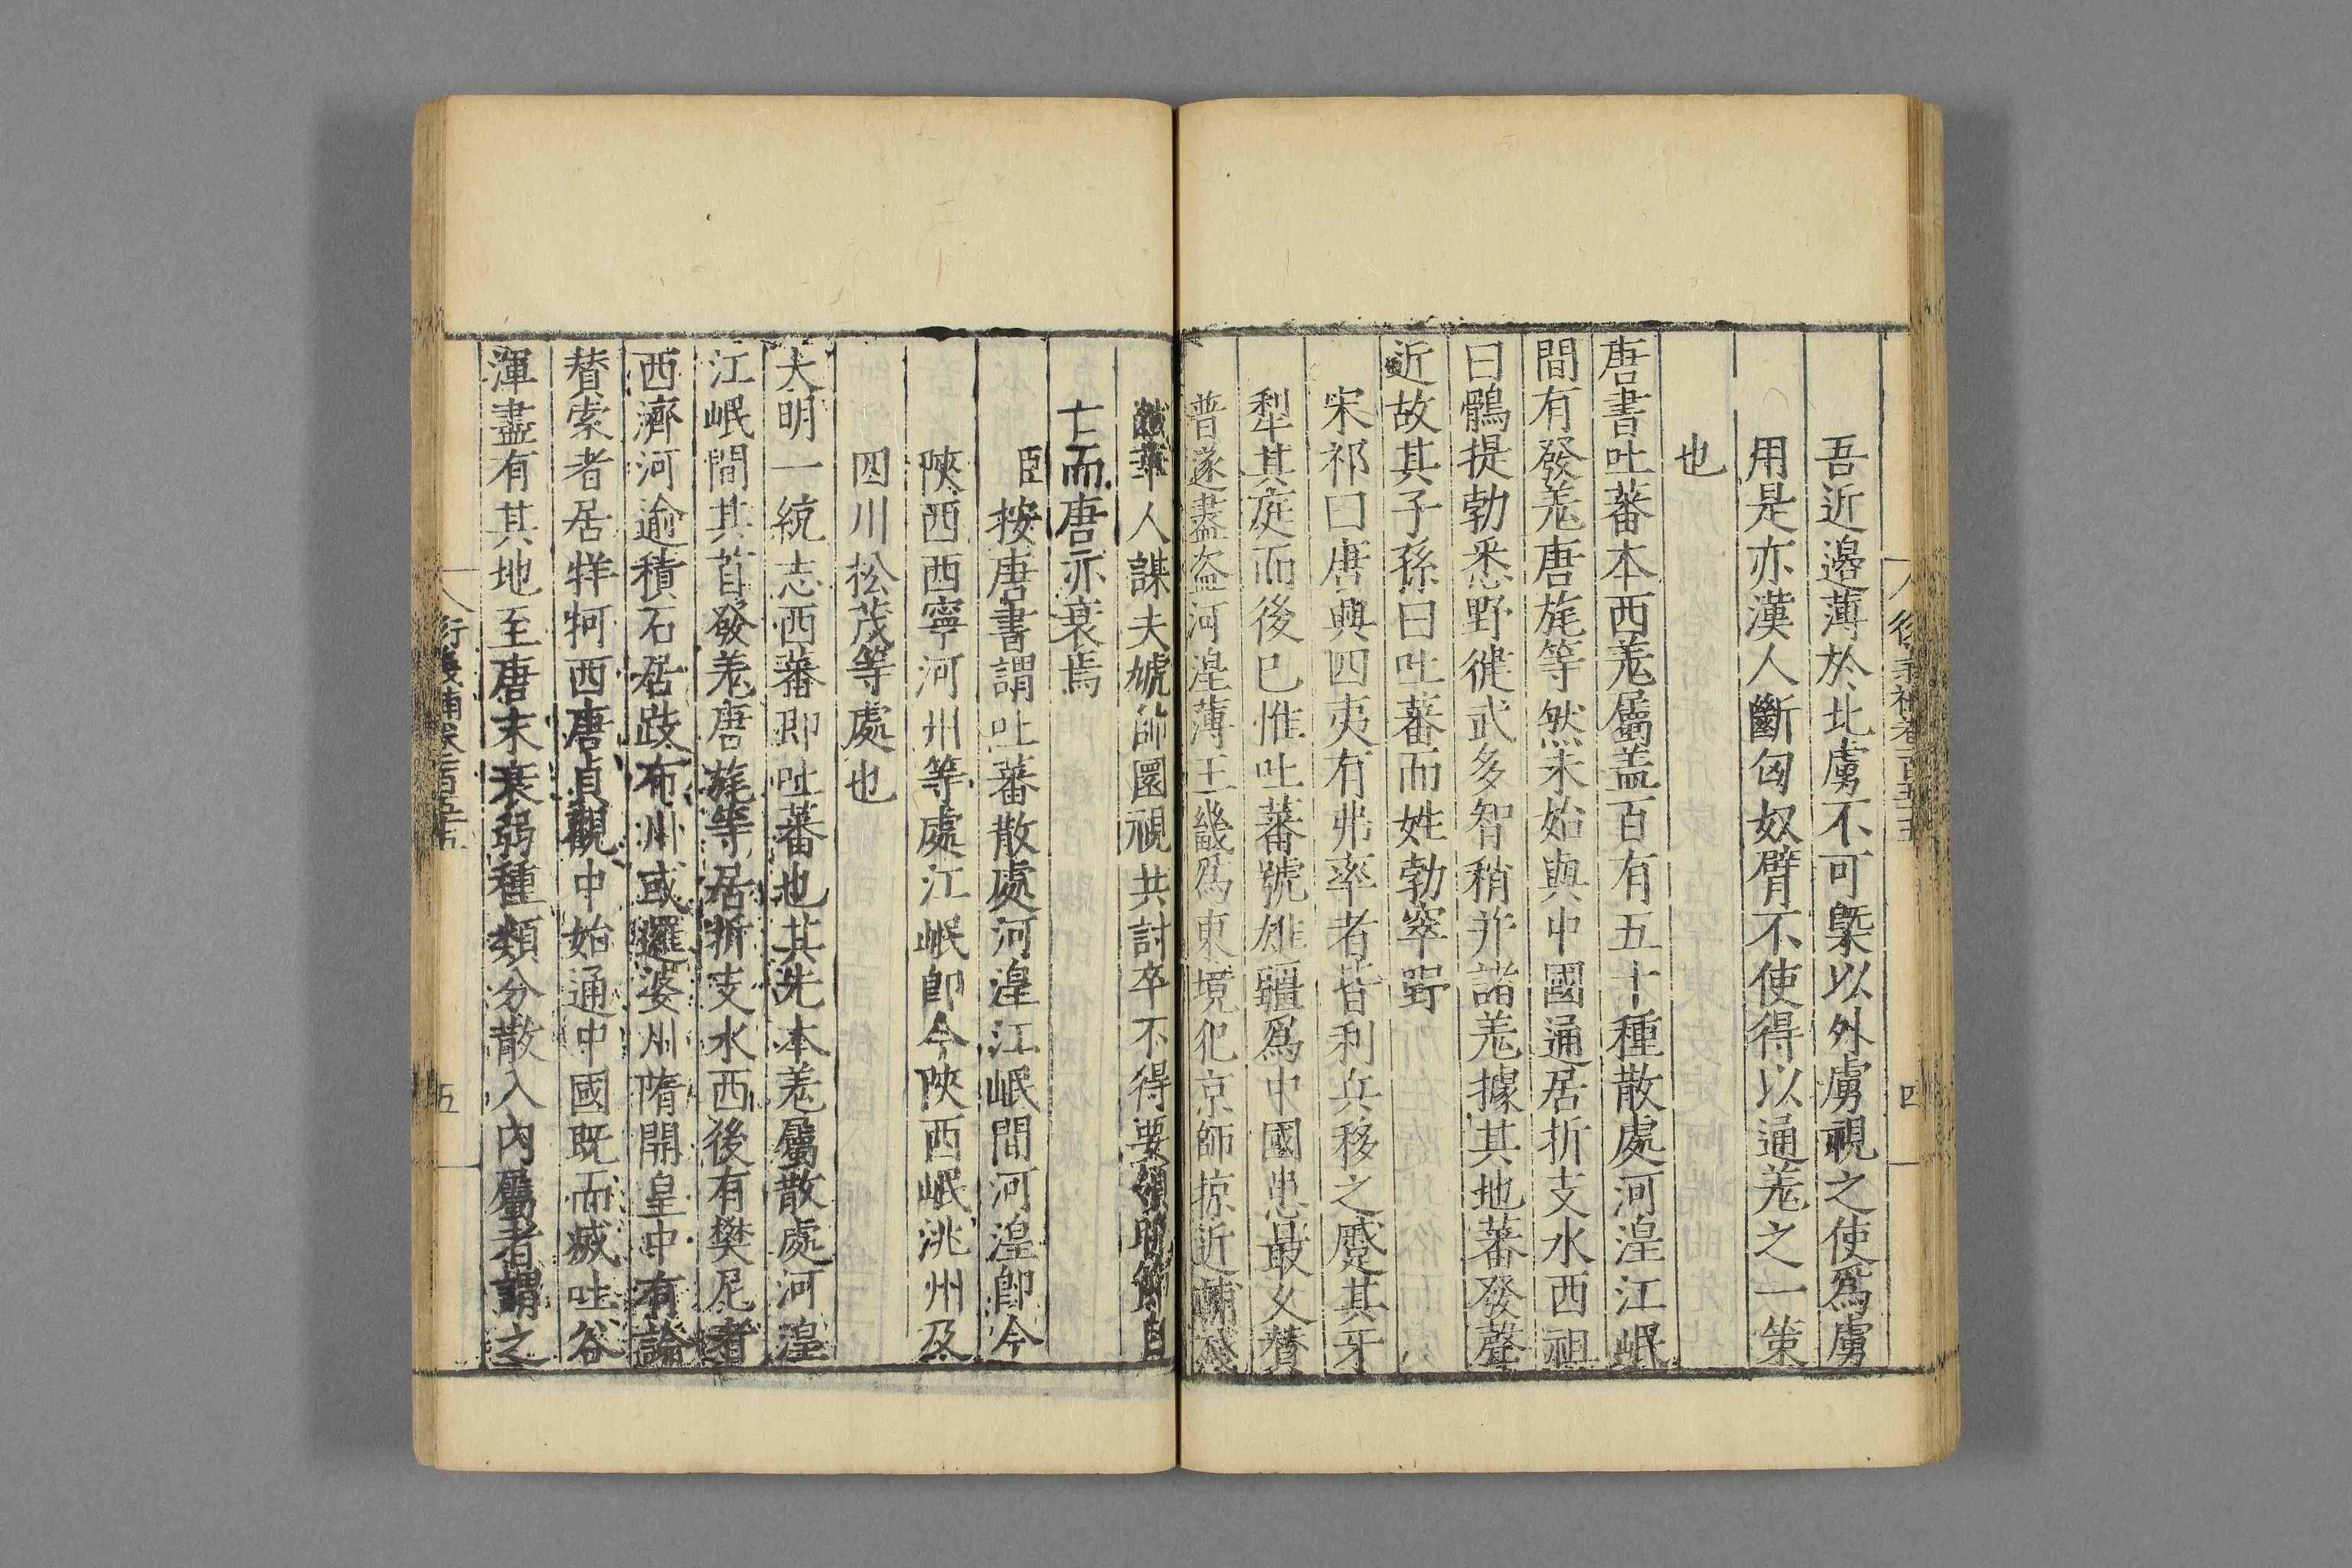 吾近邉薄於北虜不可槩以外虜視之使爲虜
用是亦漢人斷匈奴臂不使得以通羌之一策
也
唐書吐蕃本西羌屬盖百有五十種散處河湟江岷
間有發羌唐旄等然未始與中國通居折支水西祖
曰鶻提勃悉野健武多智稍并諸羌據其地蕃發聲
近故其子孫曰吐蕃而姓勃窣野
宋祁曰唐興四夷有弗率者皆利兵移之蹙其牙
犁其庭而後已惟吐蕃號雄疆爲中國患最乆賛
普遂盡盗河湟薄王畿爲東境犯京師掠近輔
華人謀夫虓帥圜視共討卒不得要領晚節自
亡而唐亦衰焉
臣按唐書謂吐蕃散處河湟江岷間河湟即今
陜西西寧河州等處江岷即今陜西岷洮州及
四川松茂等處也
大明一統志西蕃即吐蕃也其先本羌屬散處河湟
江岷間其酋發羌唐旄等居折支水西後有樊尼者
西濟河逾積石居跂布川或邏婆川隋開皇中有論
賛索者居牂牁西唐貞觀中始通中國既而滅吐谷
渾盡有其地至唐末衰弱種類分散入内屬者謂之
五